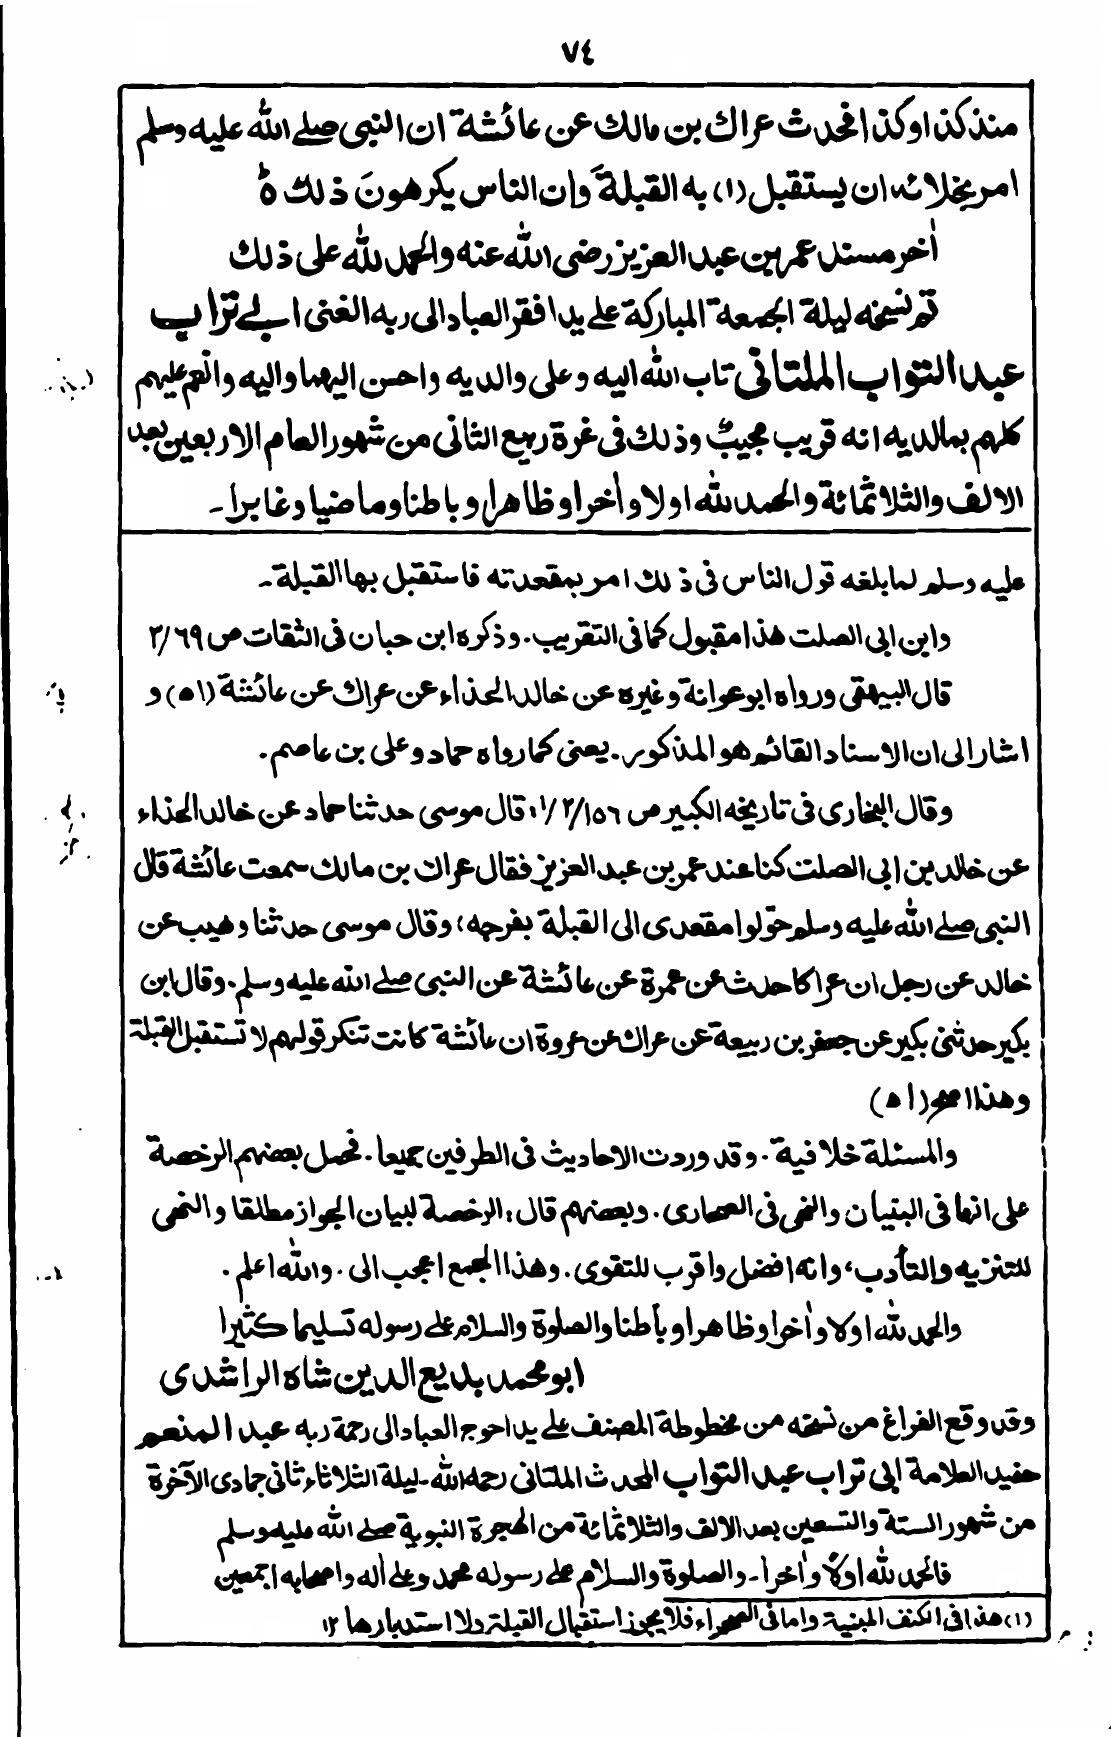 ٧٤
منذ كذا وكذا فحدث عراك بن مالك عن عائشة ان النبى صلے الله عليه وسلم
امر بخلائه ان يستقبل (١) به القبلةَ وان الناس يكرهونَ ذلك ه
اٰخر مسند عمر بن عبد العزيز رضى الله عنه والحمد لله على ذلك
تم نسخه ليلة الجمعة المباركة علے يد افقر العباد الى ربه الغنى ابے تراب
عبد التواب الملتانى تاب الله اليه وعلى والديه واحسن اليهما واليه وانعم عليهم
كلهم بمالديه انه قريب مجيب وذلك فى غرة ربيع الثانى من شهور العام الاربعين بعد
الالف والثلاثمائة والحمد لله اولا واٰخرا وظاهرا وباطنا وماضيا وغابرا ـ
عليه وسلم لما بلغه قول الناس فى ذلك امر بمقعدته فاستقبل بها القبلة ـ
وابن ابى الصلت هذا مقبول كما فى التقريب. وذكره ابن حبان فى الثقات ص ٦٩/٣
قال البيهقى ورواه ابو عوانة وغيره عن خالد الحذاء عن عراك عن عائشة (اه) و
اشار الى ان الاسناد القائم هو المذكور. يعنى كما رواه حماد وعلى بن عاصم.
وقال البخارى فى تاريخه الكبير ص ١٥٦/٢/١: قال موسى حدثنا حماد عن خالد الحذاء
عن خالد بن ابى الصلت كنا عند عمر بن عبد العزيز فقال عراك بن مالك سمعت عائشة قال
النبى صلے الله عليه وسلم حوّلوا مقعدى الى القبلة بفرجه، وقال موسى حدثنا وهيب عن
خالد عن رجل ان عراكا حدث عن عمرة عن عائشة عن النبى صلے الله عليه وسلم. وقال ابن
بكير حدثنى بكير عن جعفر بن ربيعة عن عراك عن عروة ان عائشة كانت تنكر قولهم لا تستقبل القبلة
وهذا اصح (اه)
والمسئلة خلافية. وقد وردت الاحاديث فى الطرفين جميعا. فحمل بعضهم الرخصة
على انها فى البنيان والنهى فى الصحارى. وبعضهم قال: الرخصة لبيان الجواز مطلقا والنهى
للتنزيه والتأدب، وانه افضل واقرب للتقوى. وهذا الجمع اعجب الى. والله اعلم.
والحمد لله اولا واٰخرا وظاهرا وباطنا والصلوة والسلام علے رسوله تسليما كثيرا
ابو محمد بديع الدين شاه الراشدى
وقد وقع الفراغ من نسخه من مخطوطة المصنف علے يد احوج العباد الى رحمة ربه عبد المنعم
حفيد العلامة ابى تراب عبد التواب المحدث الملتانى رحمه الله ـ ليلة الثلاثاء ثانى جمادى الآخرة
من شهور الستة والتسعين بعد الالف والثلاثمائة من الهجرة النبوية صلے الله عليه وسلم
فالحمد لله اولًا واٰخرا ـ والصلوة والسلام علے رسوله محمد وعلے اٰله واصحابه اجمعين
(١) هذا فى الكنف المبنية واما فى الصحراء فلا يجوز استقبال القبلة ولا استدبارها ١٢